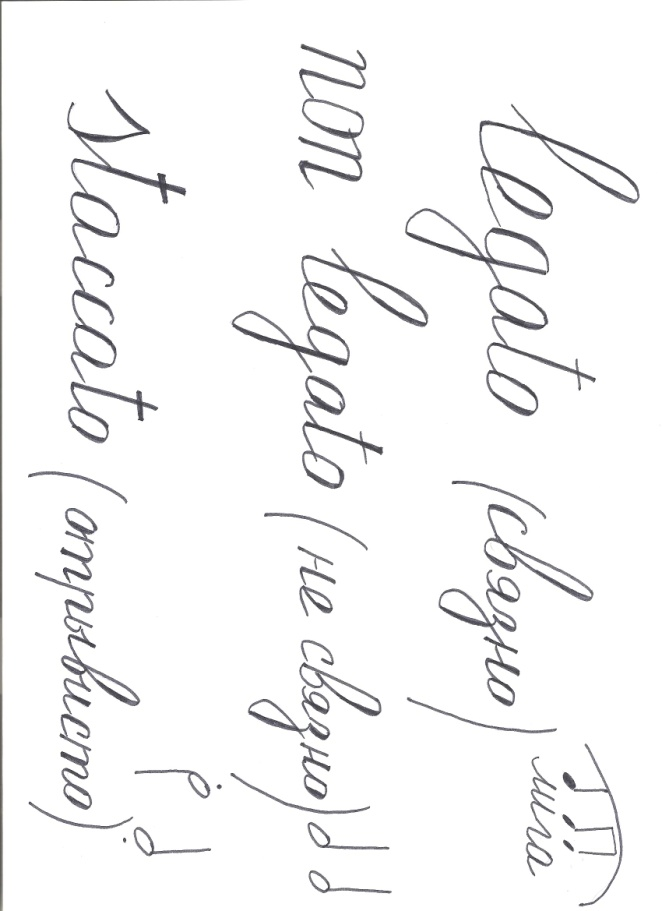 legato (связно) лига
non legato (не связно)
staccato (отрывисто)